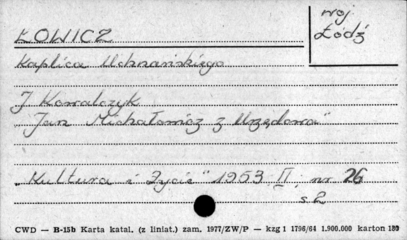 woj
ŁOWICZ Łódź
Kaplica Uchnańskiego
J Kowalczyk
"Jan Michałowicz z Urzędowa"
"Kultura i Życie" 1953 II, nr 26
s 2
CWD — B-15b Karta katal. (z liniat.) zam. 1977/ZW/P — kzg 1 1798/64 1.900.000 karton 180